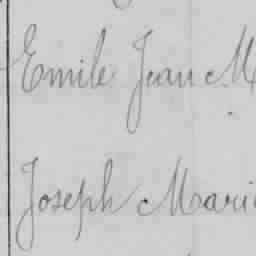 Emile Jean M
Joseph Mari